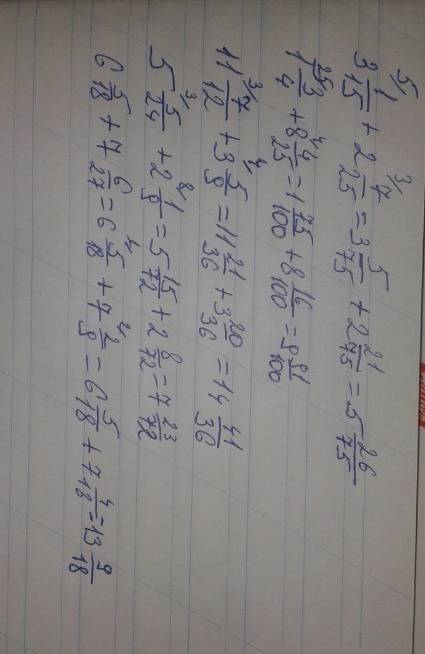 3 ⁵⁾1/15 + 2 ³⁾7/25 = 3 5/75 + 2 21/75 = 5 26/75
1 ²⁵⁾3/4 + 8 ⁴⁾4/25 = 1 75/100 + 8 16/100 = 9 91/100
11 ³⁾7/12 + 3 ⁴⁾5/9 = 11 21/36 + 3 20/36 = 14 41/36
5 ³⁾5/24 + 2 ⁸⁾1/9 = 5 15/72 + 2 8/72 = 7 23/72
6 5/18 + 7 6/27 = 6 5/18 + 7 ²⁾2/9 = 6 5/18 + 7 4/18 = 13 9/18